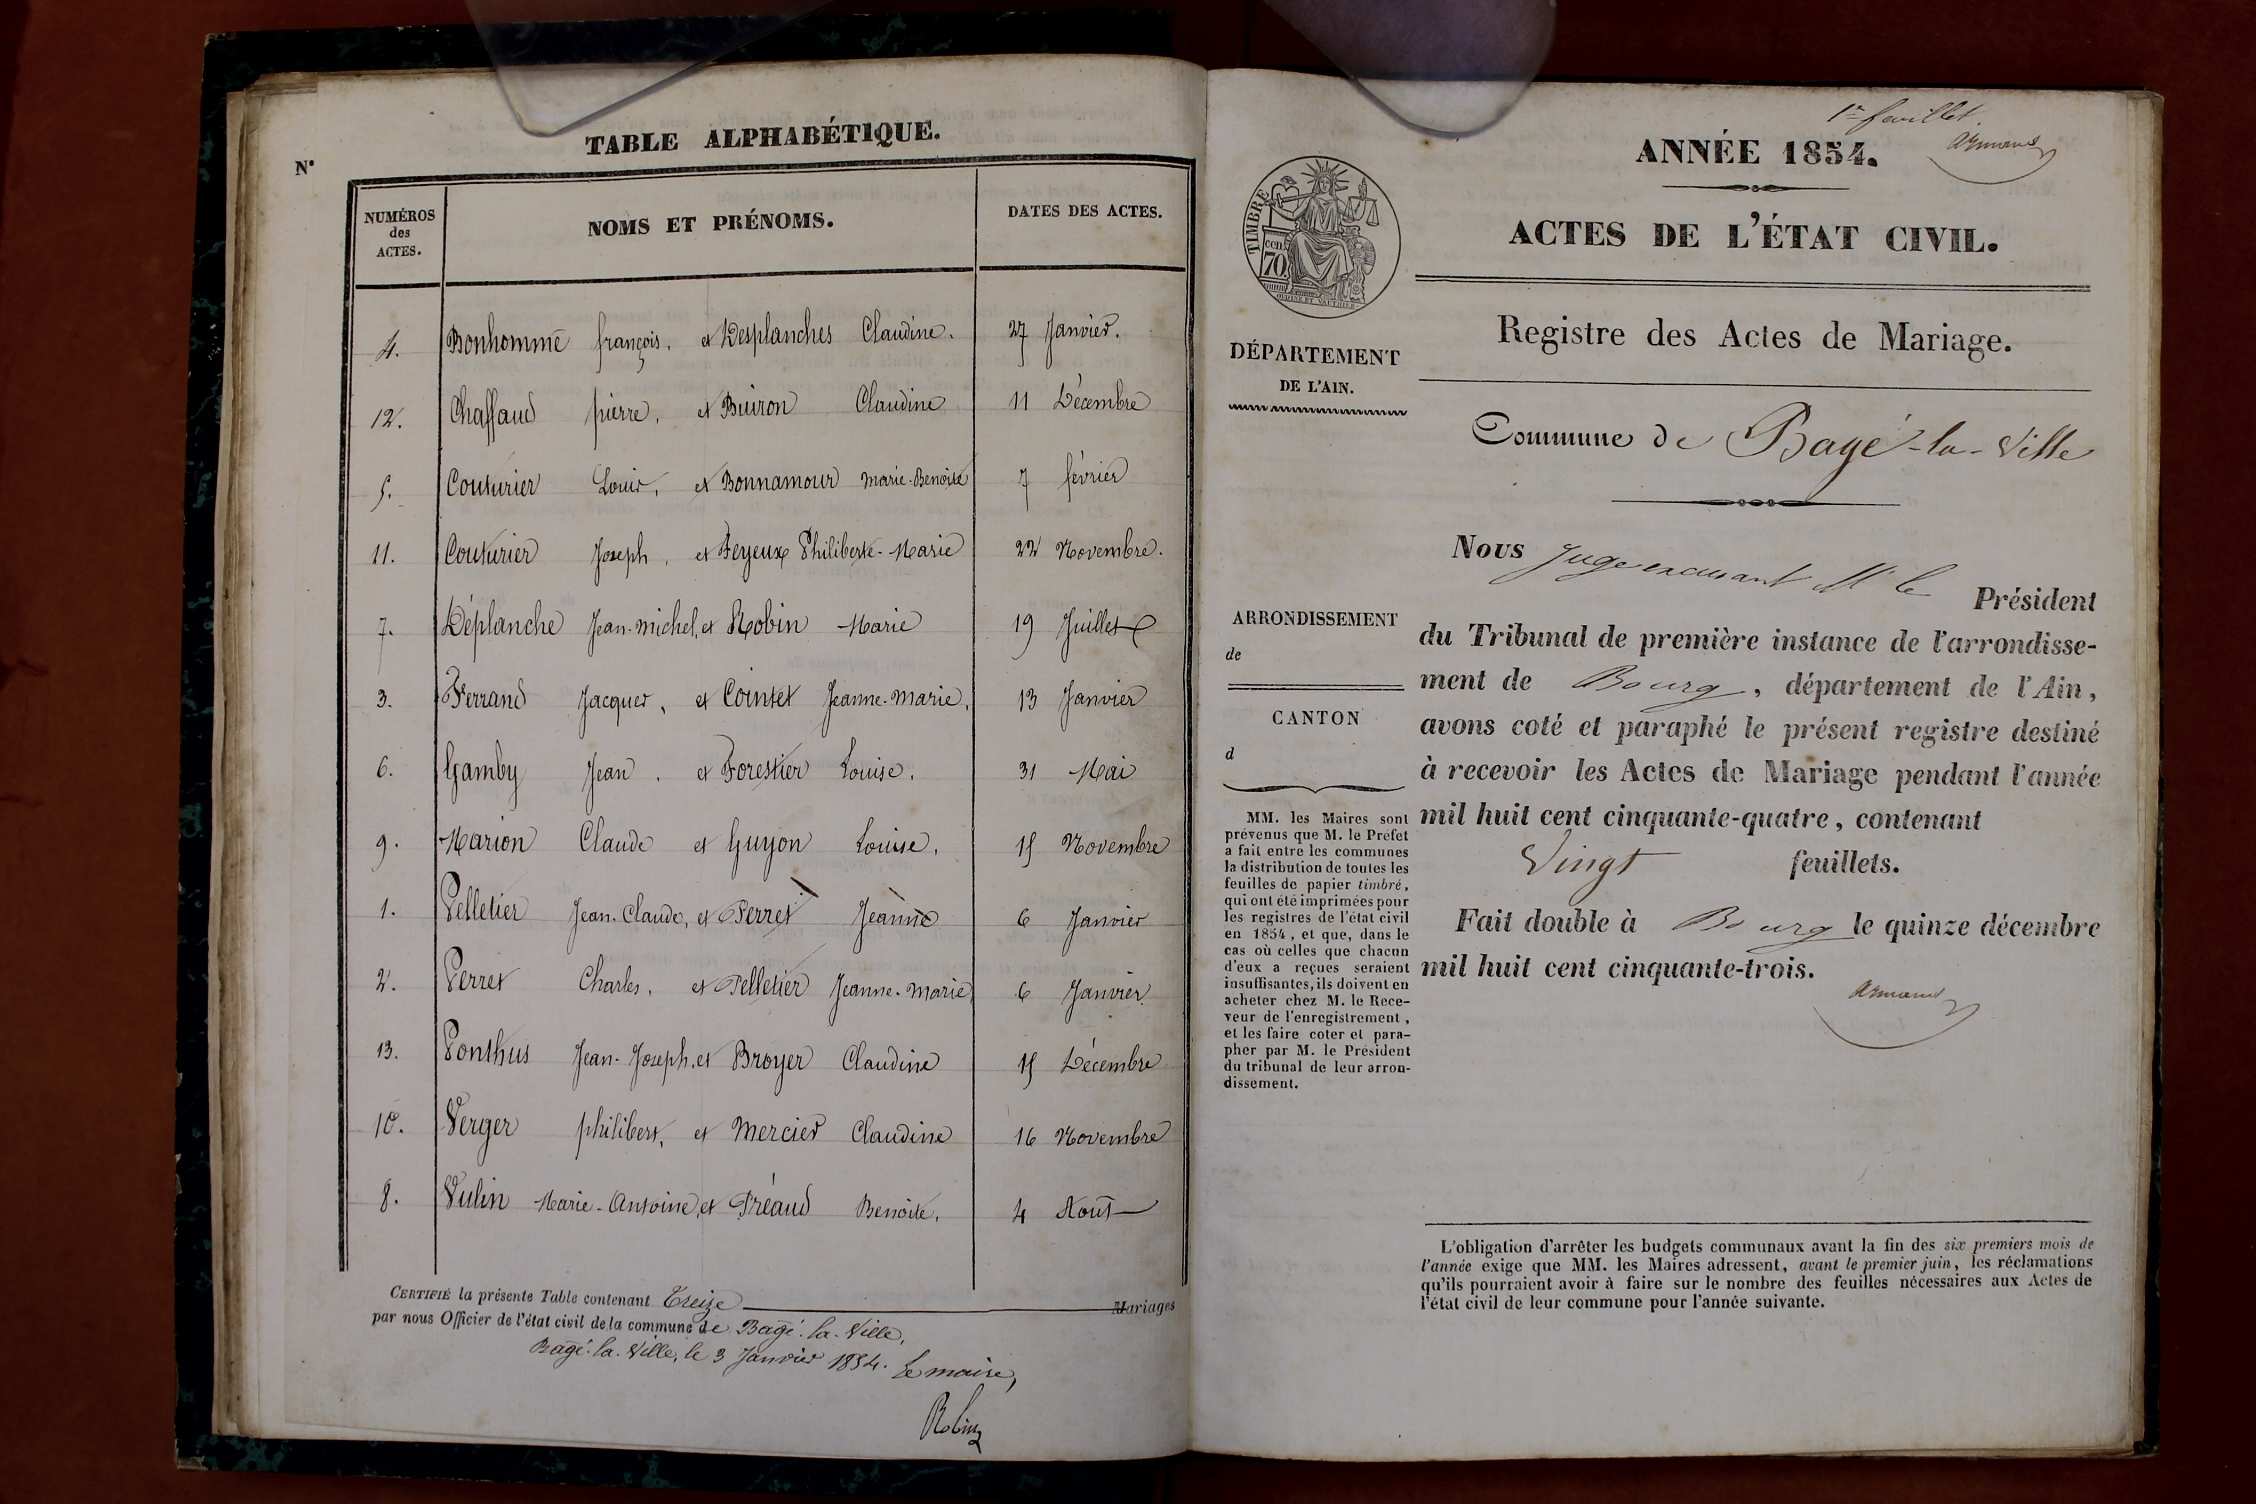 TABLE ALPHABÉTIQUE.
N°
NUMÉROS des ACTES.
NOMS ET PRÉNOMS.
DATES DES ACTES.
4. Bonhomme françois, et Desplanches Claudine. 27 Janvier.
12. Chaffaud pierre, et Buiron Claudine 11 Décembre
5. Couturier Louis, et Bonnamour Marie-Benoite 7 février
11. Couturier Joseph, et Feyeux Philiberte-Marie 22 Novembre.
7. Déplanche Jean-Michel, et Robin Marie 19 Juillet
3. Ferrand Jacques, et Cointet Jeanne-Marie, 13 Janvier
6. Gamby Jean, et Forestier Louise. 31 Mai
9. Marion Claude et Guyon Louise, 15 Novembre
1. Pelletier Jean-Claude, et Perret Jeanne 6 Janvier
2. Perret Charles, et Pelletier Jeanne-Marie, 6 Janvier
13. Ponthus Jean-Joseph, et Broyer Claudine 15 Décembre
10. Verger philibert, et Mercier Claudine 16 Novembre
8. Vulin Marie-Antoine, et Préaud Benoite, 4 Aout
CERTIFIÉ la présente Table contenant Treize Mariages
par nous Officier de l'état civil de la commune de Bagé-la-Ville,
Bagé-la-Ville, le 3 Janvier 1854. Le maire,
Robin
1er feuillet
Armand
ANNÉE 1854.
ACTES DE L'ÉTAT CIVIL.
TIMBRE
cen. 70.
Registre des Actes de Mariage.
DÉPARTEMENT
DE L'AIN.
Commune de Bagé-la-Ville
Nous Juge excusant M le Président
du Tribunal de première instance de l'arrondisse-
ment de Bourg, département de l'Ain,
avons coté et paraphé le présent registre destiné
à recevoir les Actes de Mariage pendant l'année
mil huit cent cinquante-quatre, contenant
Vingt feuillets.
Fait double à Bourg le quinze décembre
mil huit cent cinquante-trois.
Armand
ARRONDISSEMENT
de
CANTON
d
MM. les Maires sont
prévenus que M. le Préfet
a fait entre les communes
la distribution de toutes les
feuilles de papier timbré,
qui ont été imprimées pour
les registres de l'état civil
en 1854, et que, dans le
cas où celles que chacun
d'eux a reçues seraient
insuffisantes, ils doivent en
acheter chez M. le Rece-
veur de l'enregistrement,
et les faire coter et para-
pher par M. le Président
du tribunal de leur arron-
dissement.
L'obligation d'arrêter les budgets communaux avant la fin des six premiers mois de
l'année exige que MM. les Maires adressent, avant le premier juin, les réclamations
qu'ils pourraient avoir à faire sur le nombre des feuilles nécessaires aux Actes de
l'état civil de leur commune pour l'année suivante.